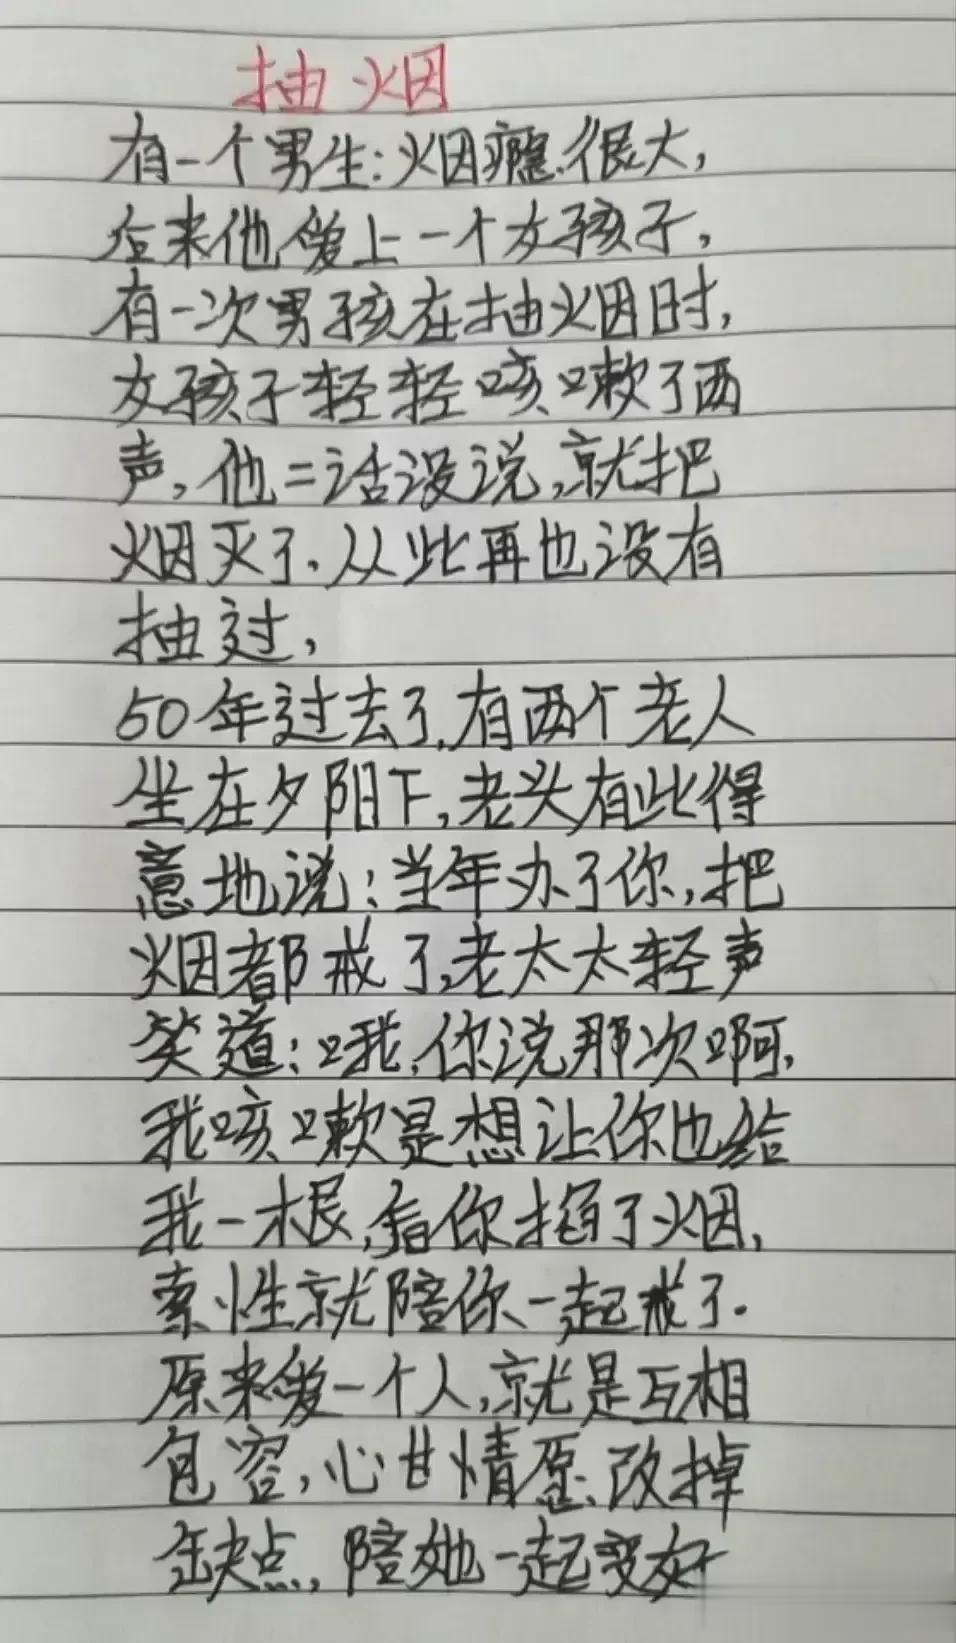 抽烟
有一个男生:烟瘾很大,
后来他爱上一个女孩子,
有一次男孩在抽烟时,
女孩子轻轻咳嗽了两
声,他二话没说,就把
烟灭了.从此再也没有
抽过,
50年过去了,有两个老人
坐在夕阳下,老头有些得
意地说:当年为了你,把
烟都戒了,老太太轻声
笑道:哦,你说那次啊,
我咳嗽是想让你也给
我一根,看你掐了烟,
索性就陪你一起戒了.
原来爱一个人,就是互相
包容,心甘情愿、改掉
缺点,陪她一起变好